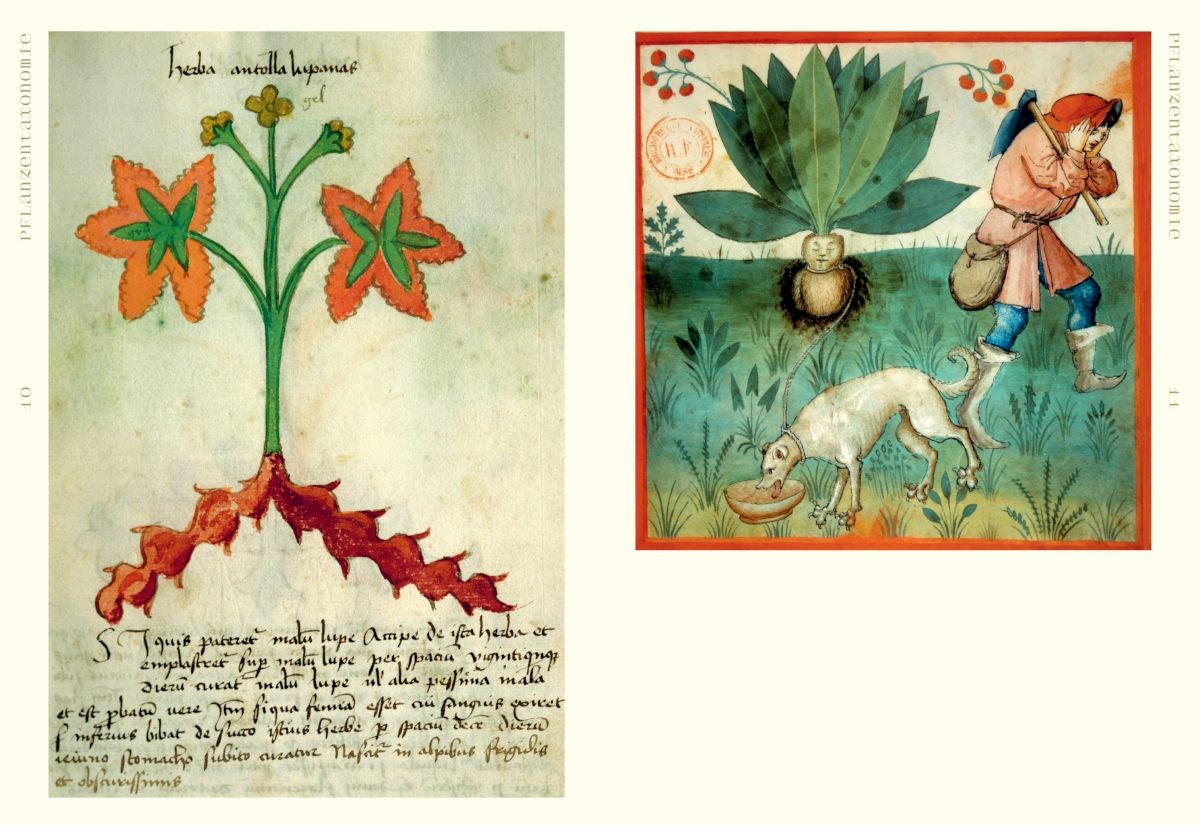 Pflanzentaxonomie
10
herba antolla lupanas
gel
Si quis pateret̃ malũ lupe Accipe de ista herba et
emplastret̃ sup̃ malũ lupe per spaciũ vigintiqnqȝ
dierũ curat malũ lupe ul alia pessima mala
et est ꝓbatũ vere Itm̃ si qua femĩa esset cui sanguis exiret
inferius bibat de succo istius herbe ꝑ spaciũ decẽ dierũ
ieiuno stomacho subito curatur Nascit̃ in alpibus frigidis
et obscurissimis
R.F
Pflanzentaxonomie
11